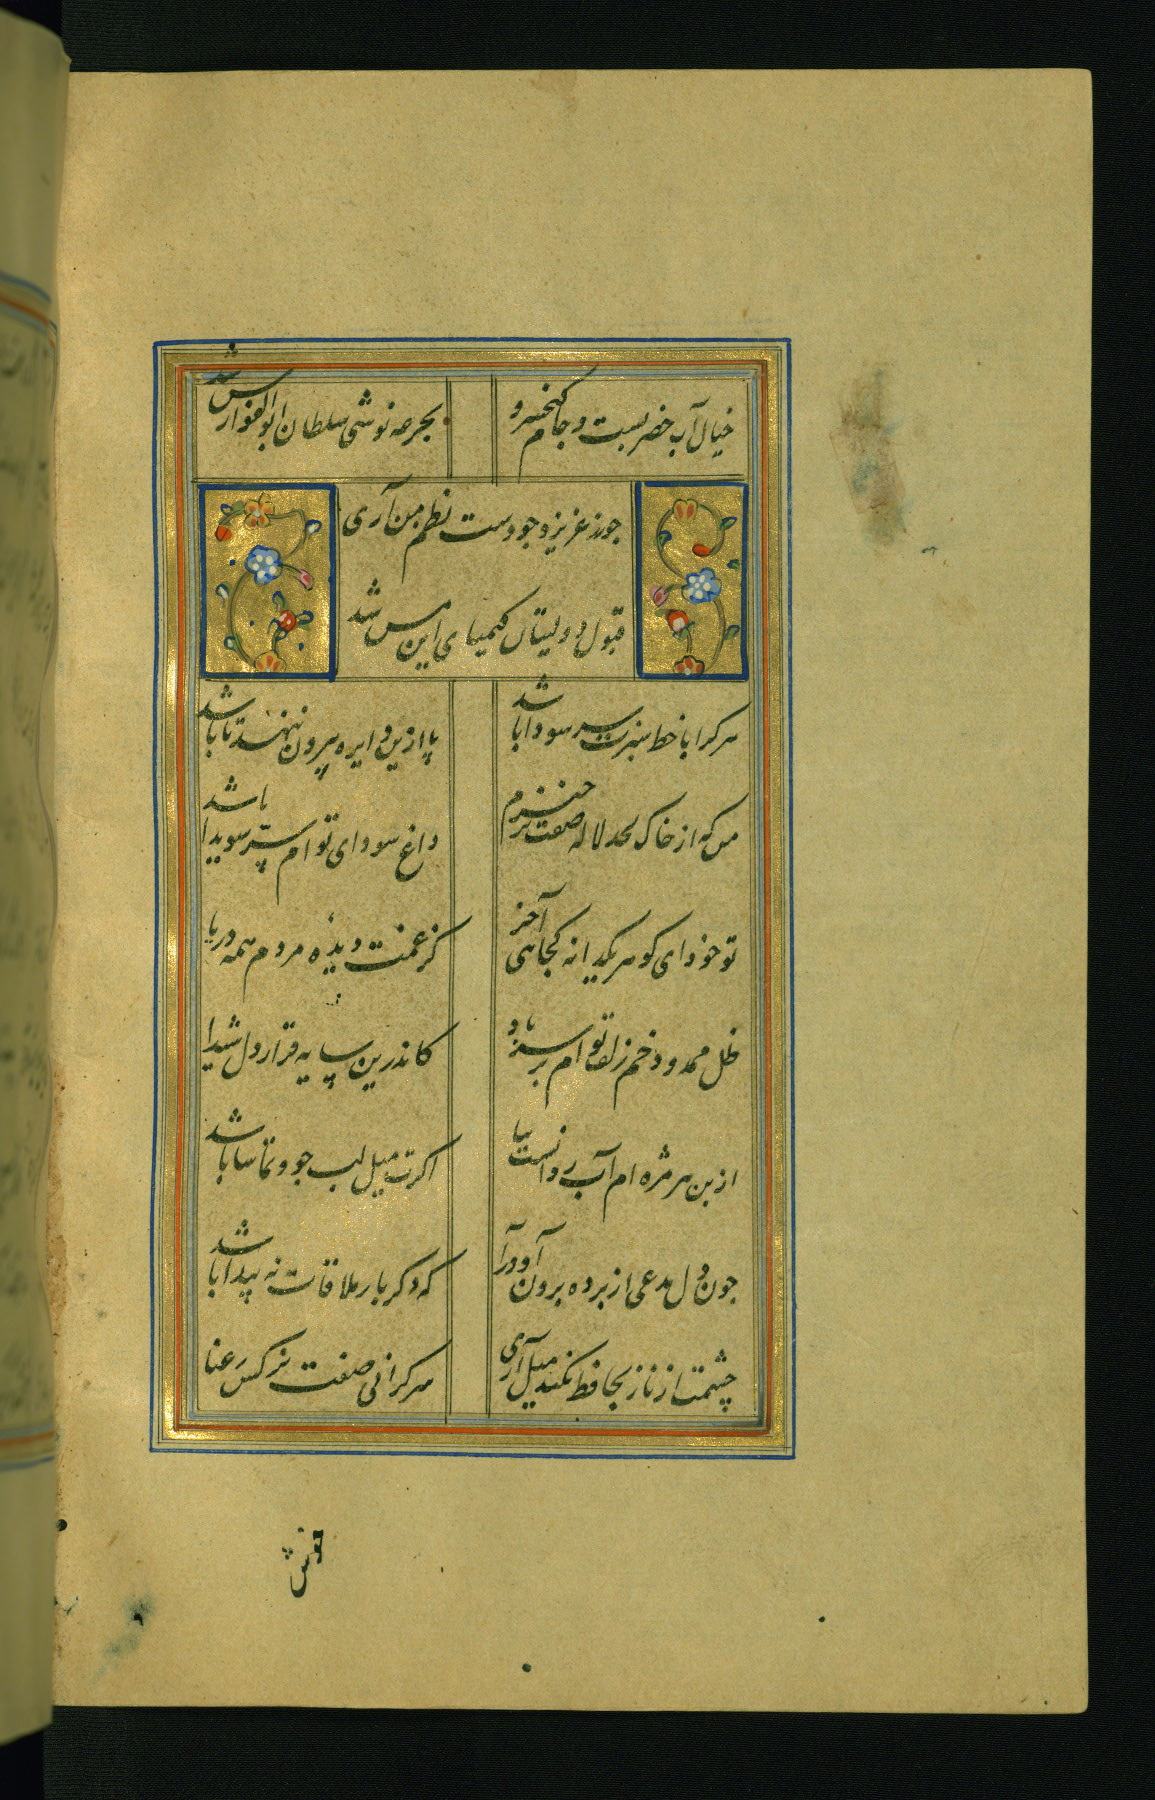 خیال آب خضر بست و جام کیخسرو
بجرعه نوشی سلطان ابوالفوارس شد
چو زر عزیز وجودست نظم من آری
قبول دولتیان کیمیای این مس شد
هر کرا با خط سبزت سر سودا باشد
پا ازین دایره بیرون ننهد تا باشد
من که از خاک لحد لاله صفت برخیزم
داغ سودای توام سر سویدا باشد
تو خود ای گوهر یکدانه کجایی آخر
کز غمت دیده مردم همه دریا
ظل ممدود خم زلف توام بر سر باد
کاندرین سایه قرار دل شیدا
از بن هر مژه ام آب روانست بیا
اگرت میل لب جو و تماشا باشد
چون دل مدعی از پرده برون آ و درآ
که دگر بار ملاقات نه پیدا باشد
چشمت از ناز بحافظ نکند میل آری
سرگرانی صفت نرگس رعنا